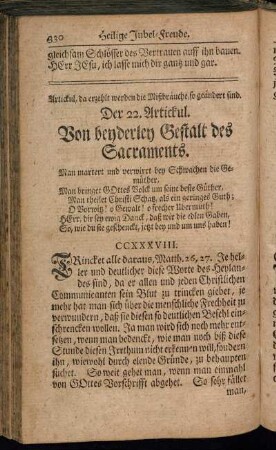 930 Heilige Jubel-Freude.
gleichsam Schlösser des Vertrauen auff ihn bauen.
HErr JEsu, ich lasse mich dir gantz und gar.
Artickul, da erzehlt werden die Mißbräuche, so geändert sind.
Der 22. Artickul.
Von beyderley Gestalt des
Sacraments.
Man martert und verwirrt bey Schwachen die Ge-
müther.
Man bringet GOttes Volck um seine beste Güther.
Man theilet Christi Schatz, als ein geringes Guth:
O Vorwitz! o Gewalt! o frecher Ubermuth!
HErr, dir sey ewig Danck, daß wir die edlen Gaben,
So, wie du sie geschenckt, jetzt bey und um uns haben!
CCXXXVIII.
TRincket alle daraus, Matth. 26, 27. Je hel-
ler und deutlicher diese Worte des Heylan-
des sind, da er allen und jeden Christlichen
Communicanten sein Blut zu trincken giebet, je
mehr hat man sich über die menschliche Frechheit zu
verwundern, daß sie diesen so deutlichen Befehl ein-
schrencken wollen. Ja man wird sich noch mehr ent-
setzen, wenn man bedenckt, wie man noch biß diese
Stunde diesen Irrthum nicht erkennen will, sondern
ihn, wiewohl durch elende Gründe, zu behaupten
suchet. So weit gehet man, wenn man einmahl
von GOttes Vorschrifft abgehet. So sehr fället
man,